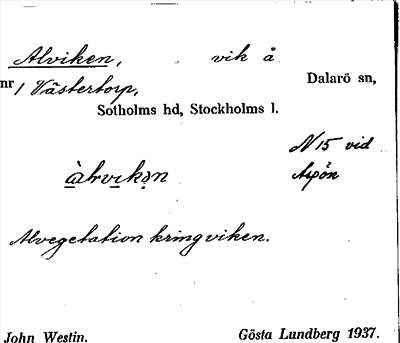 Alviken, vik å
nr 1 Västertorp, Dalarö sn,
Sotholms hd, Stockholms l.
N 15 vid
Aspön
àlvikən
Alvegetation kring viken.
John Westin. Gösta Lundberg 1937.